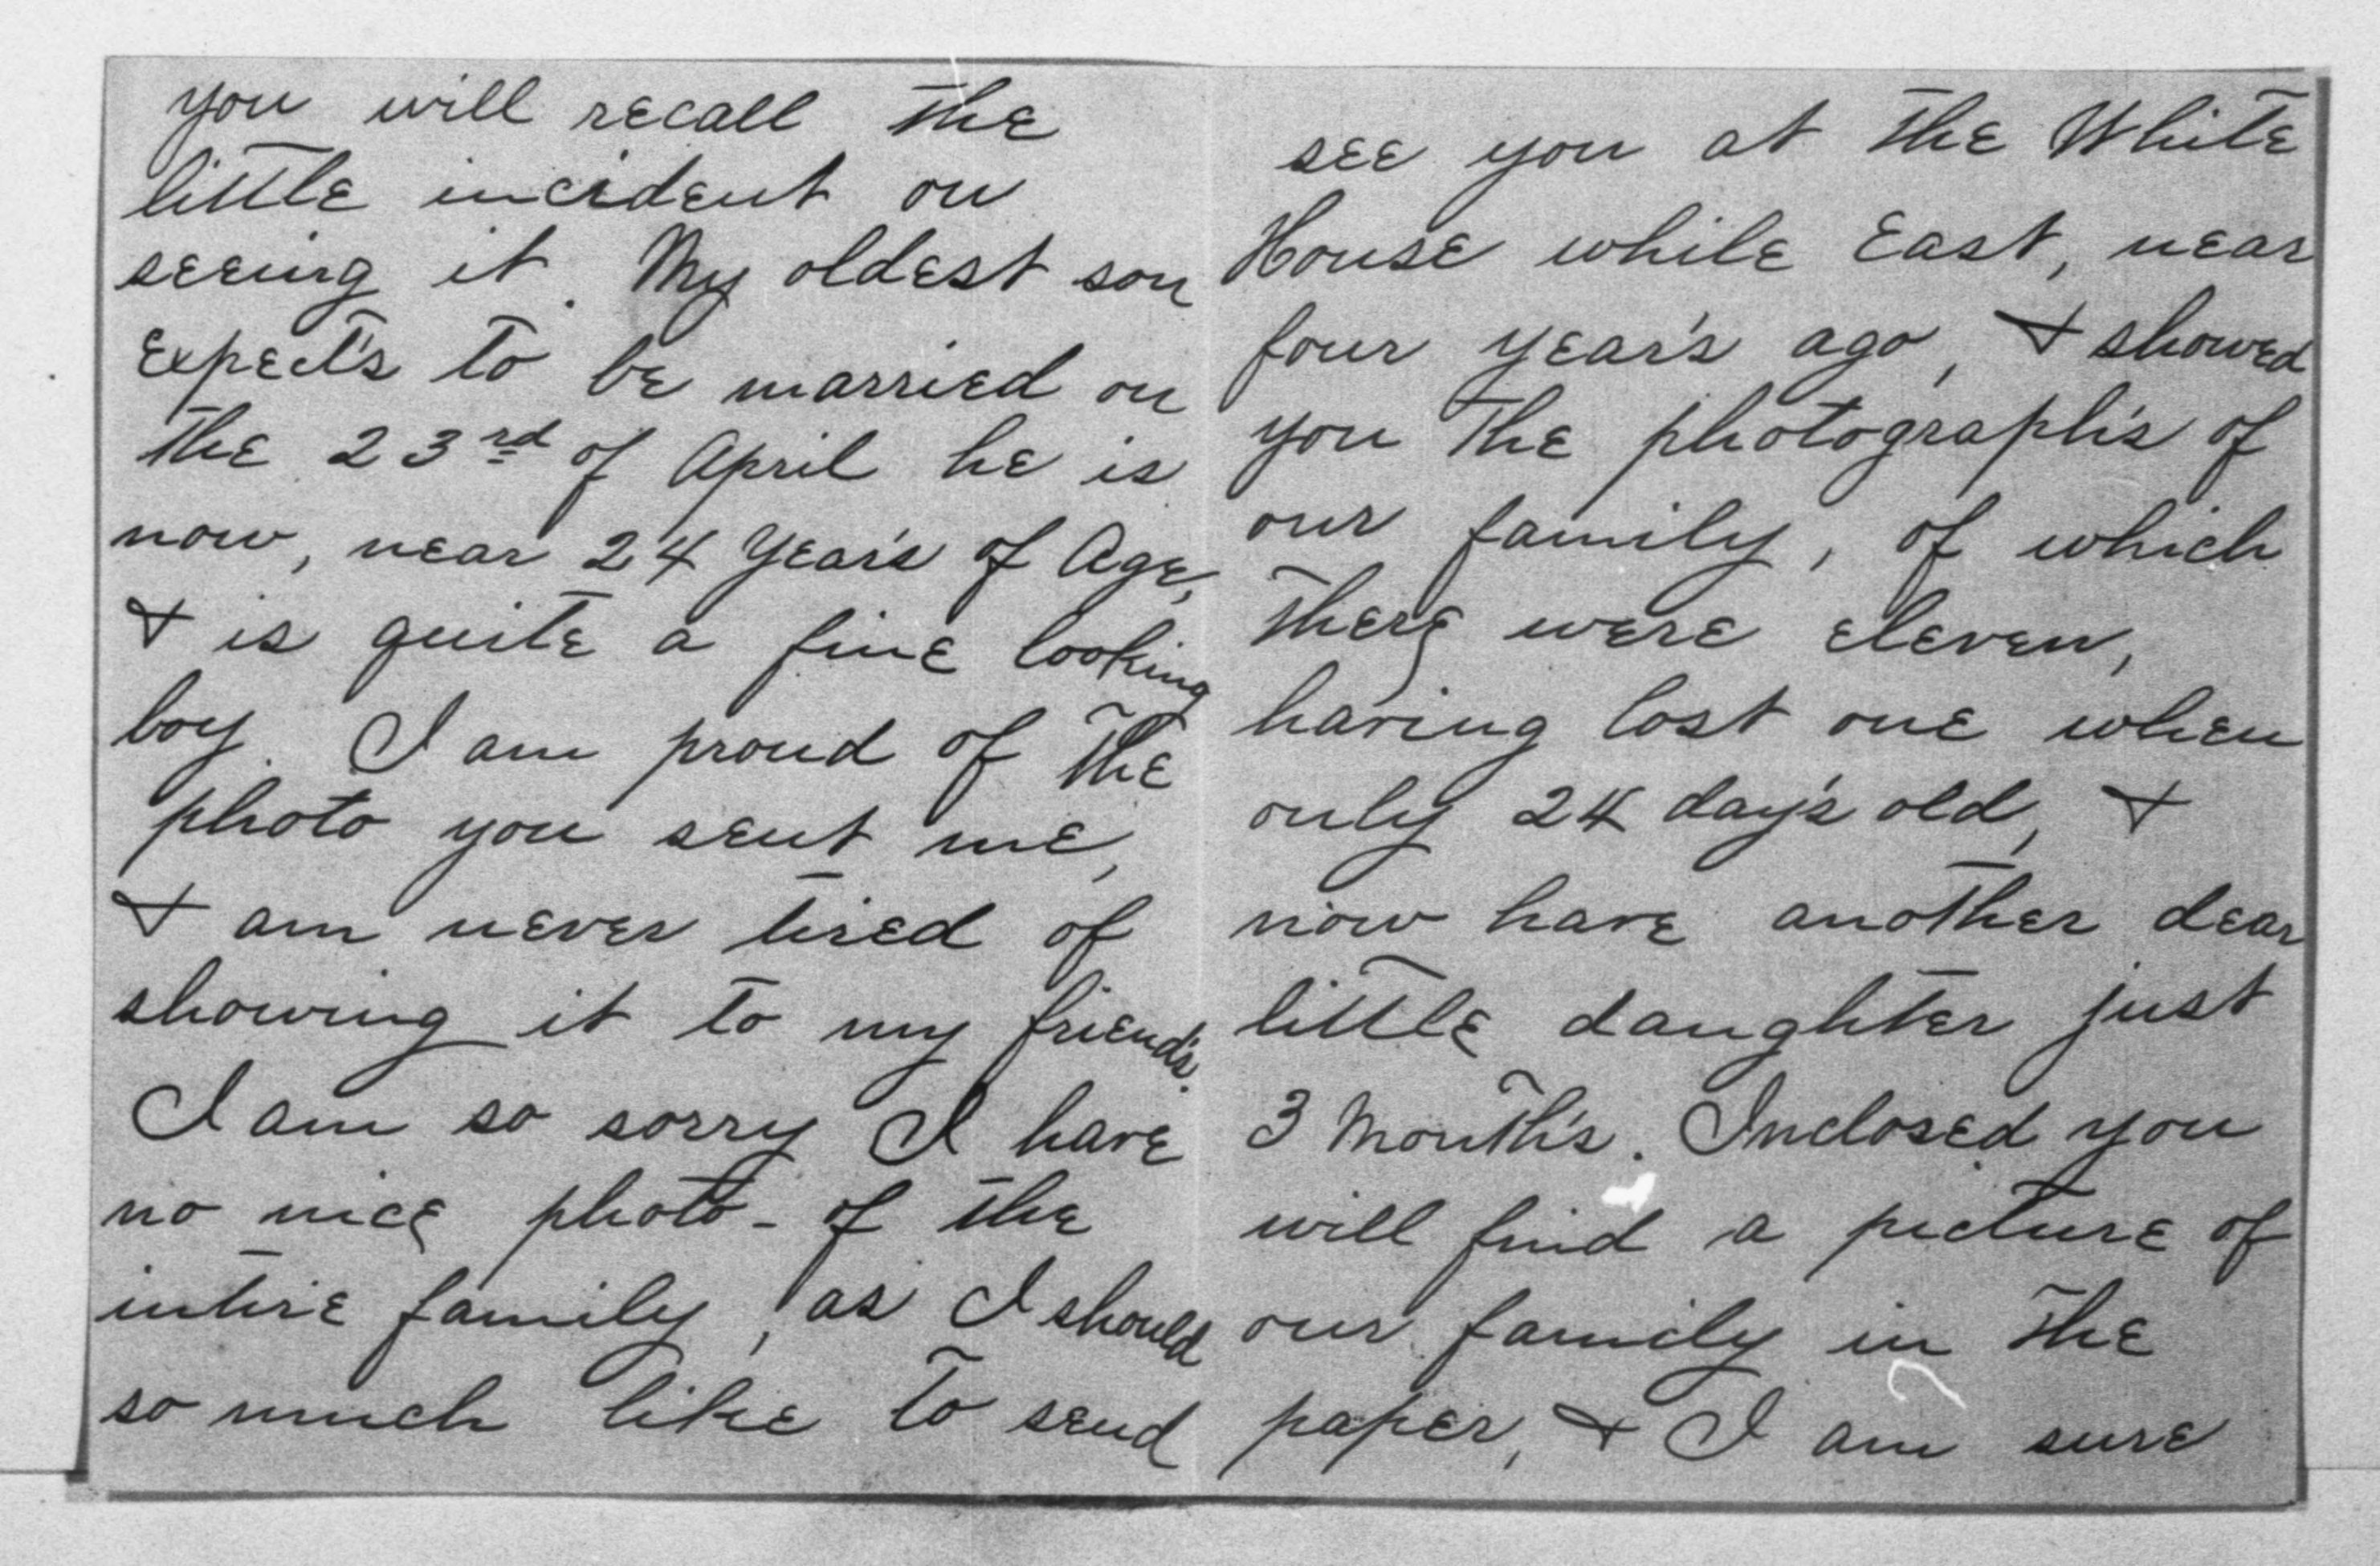 you will recall the
little incident on
seeing it. My oldest son
Expect's to be married on
the 23rd of April he is
now, near 24 Year's of Age,
& is quite a fine looking
boy. I am proud of the
photo you sent me,
& am never tired of
showing it to my friend's.
I am so sorry I have
no nice photo- of the
intire family, as I should
so much like to send
see you at the White
House while East, near
four year's ago, & showed
you the photograph's of
our family, of which
there were eleven,
having lost one when
only 24 day's old, &
now have another dear
little daughter just
3 Month's. Inclosed you
will find a picture of
our family in the
paper, & I am sure